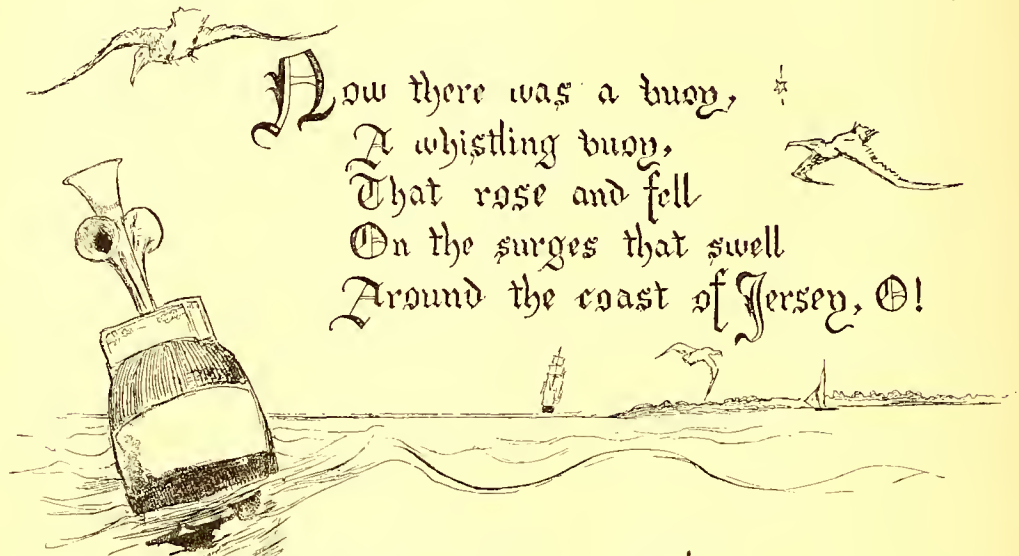 Now there was a buoy,
A whistling buoy,
That rose and fell
On the surges that swell
Around the coast of Jersey, O!